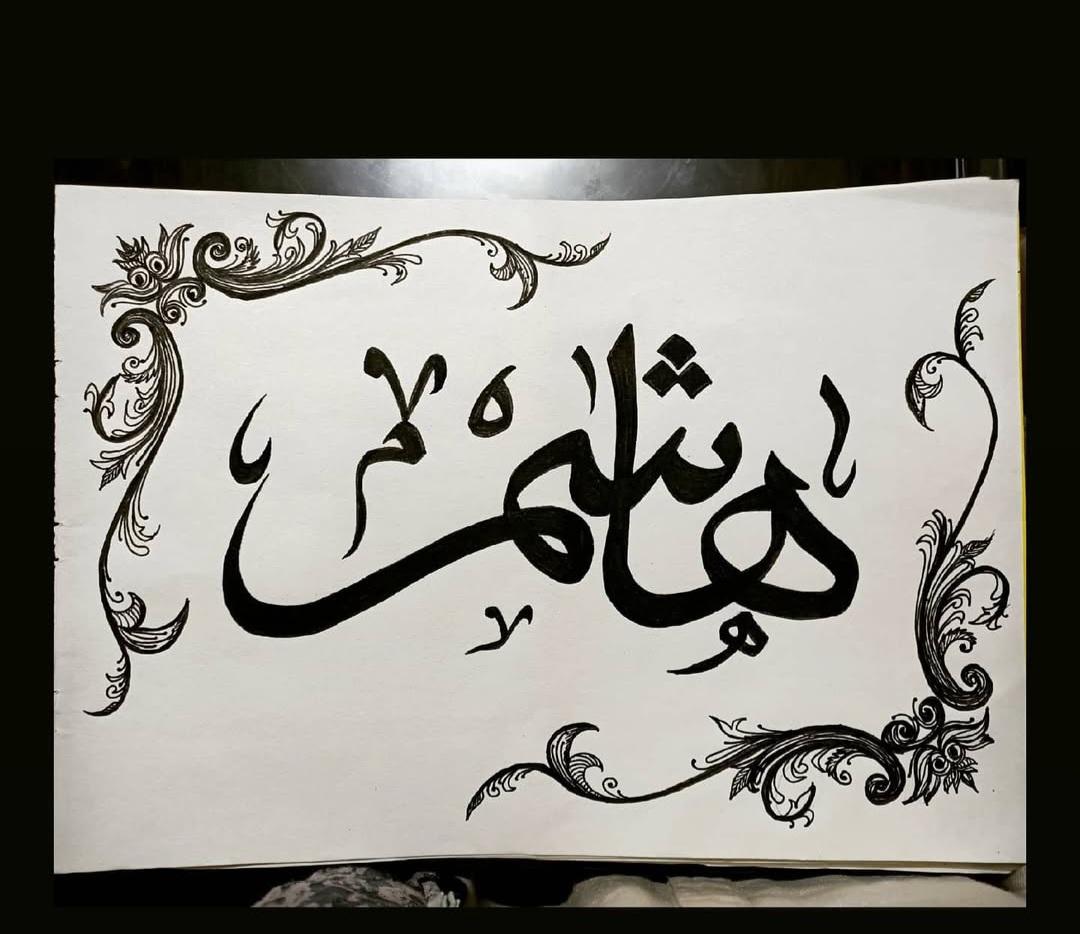 هاشم